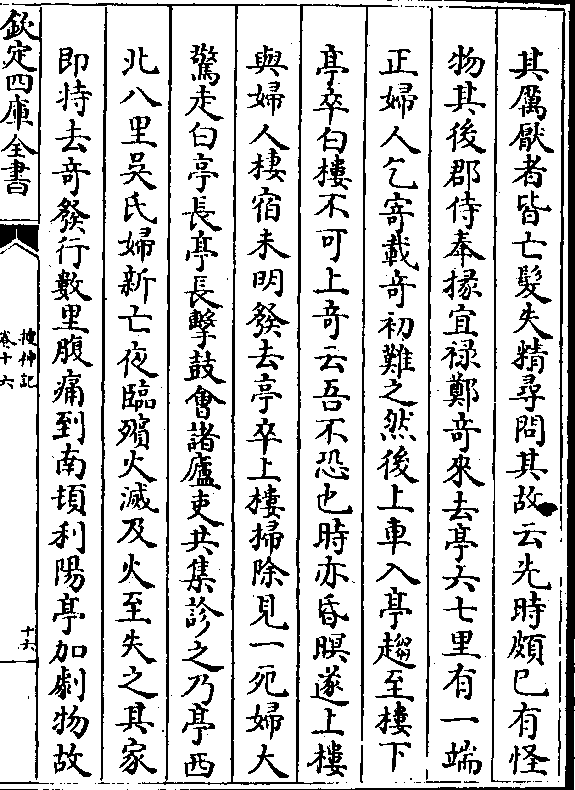 其厲厭者皆亡髮失精尋問其故云先時頗已有怪
物其後郡侍奉掾宜祿鄭奇來去亭六七里有一端
正婦人乞寄載奇初難之然後上車入亭趨至樓下
亭卒白樓不可上奇云吾不恐也時亦昏暝遂上樓
與婦人棲宿未明發去亭卒上樓掃除見一死婦大
驚走白亭長亭長擊鼓會諸廬吏共集診之乃亭西
北八里吳氏婦新亡夜臨殯火滅及火至失之其家
即持去奇發行數里腹痛到南頓利陽亭加劇物故
欽定四庫全書
搜神記
卷十六
十六